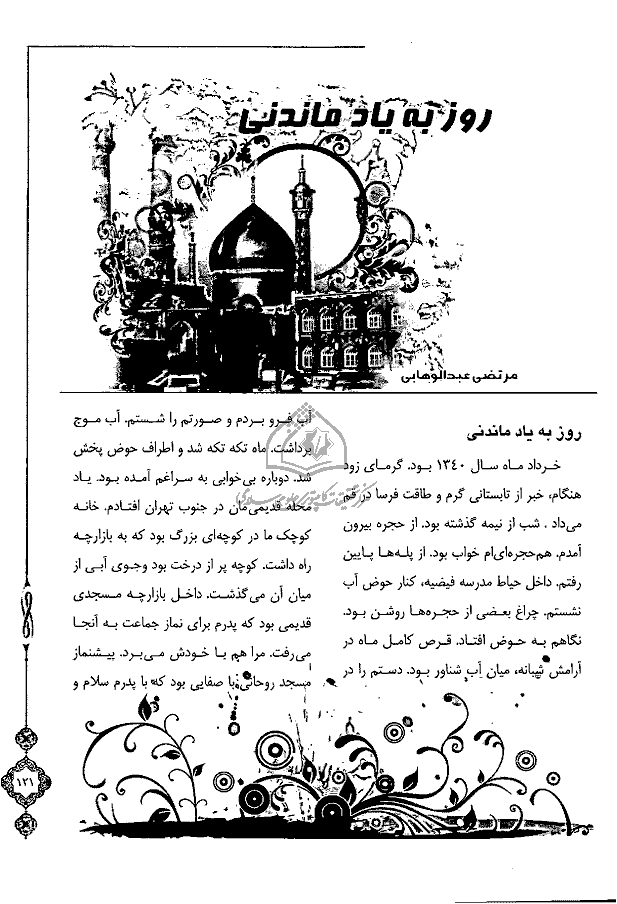 روز به یاد ماندنی
مرتضی عبدالوهابی
روز به یاد ماندنی
خرداد ماه سال ۱۳۴۰ بود. گرمای زود
هنگام، خبر از تابستانی گرم و طاقت فرسا در قم
می‌داد. شب از نیمه گذشته بود. از حجره بیرون
آمدم. هم‌حجره‌ای‌ام خواب بود. از پله‌ها پایین
رفتم. داخل حیاط مدرسه فیضیه، کنار حوض آب
نشستم. چراغ بعضی از حجره‌ها روشن بود.
نگاهم به حوض افتاد. قرص کامل ماه در
آرامش شبانه، میان آب شناور بود. دستم را در
آب فرو بردم و صورتم را شستم. آب موج
برداشت. ماه تکه تکه شد و اطراف حوض پخش
شد. دوباره بی‌خوابی به سراغم آمده بود. یاد
محله قدیمی‌مان در جنوب تهران افتادم. خانه
کوچک ما در کوچه‌ای بزرگ بود که به بازارچه
راه داشت. کوچه پر از درخت بود وجوی آبی از
میان آن می‌گذشت. داخل بازارچه مسجدی
قدیمی بود که پدرم برای نماز جماعت به آنجا
می‌رفت. مرا هم با خودش می‌برد. پیشنماز
مسجد روحانی با صفایی بود که با پدرم سلام و
۱۲۱